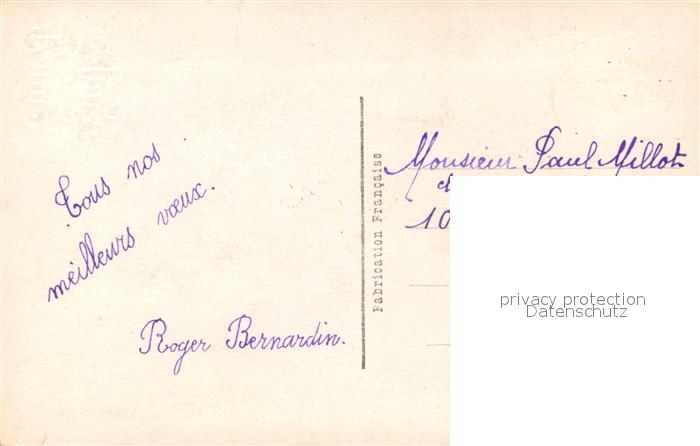 Tous nos
meilleurs vœux.
Roger Bernardin.
Fabrication Française
Monsieur Paul Millot
10
privacy protection
Datenschutz